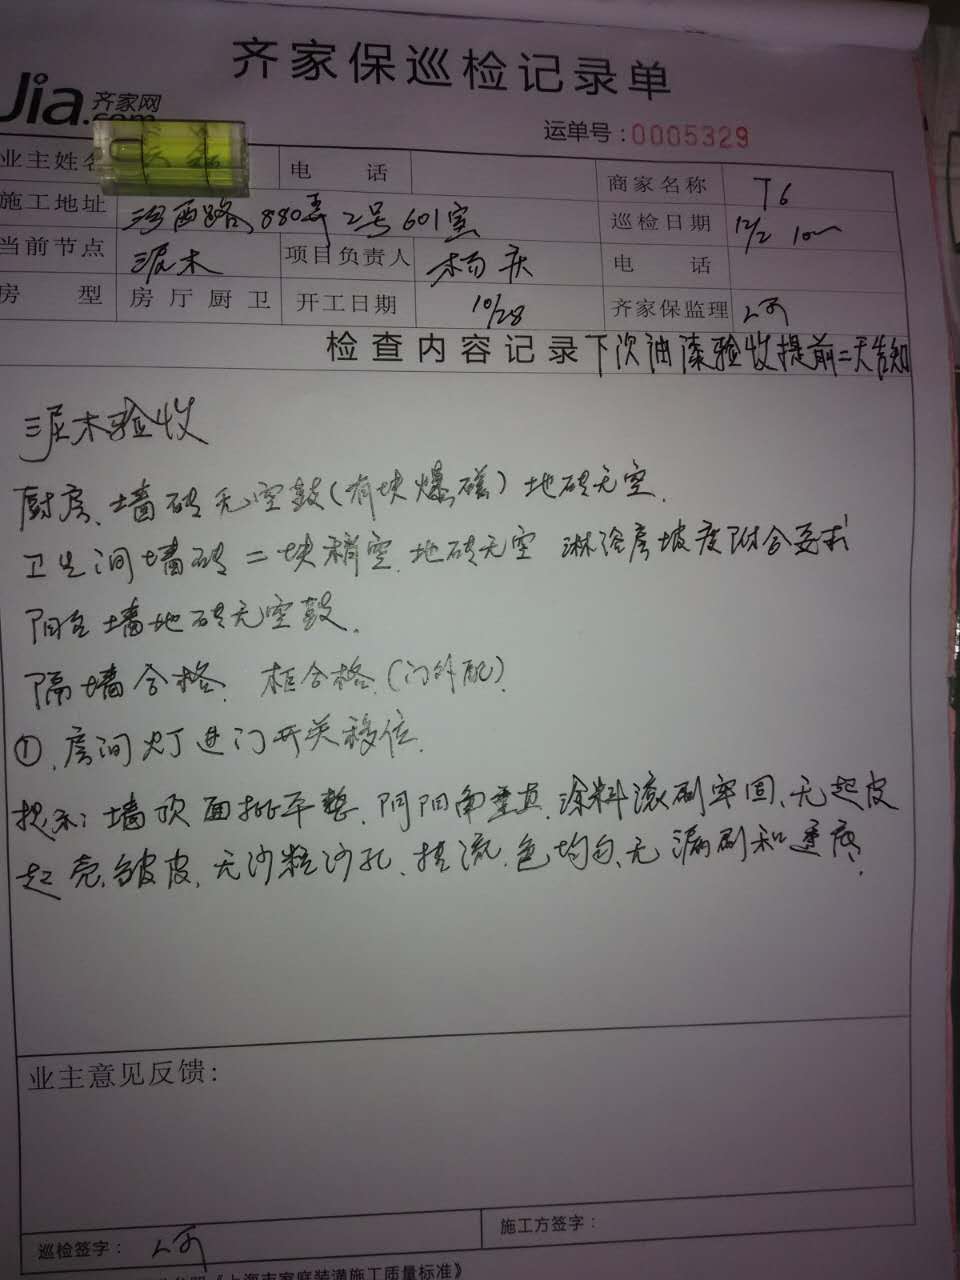 齐家保巡检记录单
Jia.com 齐家网
运单号:0005329
业主姓名 电 话 商家名称 T6
施工地址 沪西路880弄2号601室 巡检日期 12/2 10
当前节点 泥木 项目负责人 杨庆 电 话
房 型 房厅厨卫 开工日期 10/28 齐家保监理
检查内容记录 下次油漆验收提前二天告知
泥木验收
厨房、墙砖无空鼓(有块爆磁)地砖无空.
卫生间墙砖二块稍空.地砖无空 淋浴房坡度附合要求
阳台墙地砖无空鼓.
隔墙合格. 柜合格.(门外配).
①.房间灯进门开关移位.
提示:墙顶面批平整.阴阳角垂直.涂料滚刷牢固、无起皮
起壳.皱皮.无沙粒沙孔、挂流.色均匀、无漏刷和透底.
业主意见反馈:
巡检签字:
施工方签字:
《上海市家庭装潢施工质量标准》